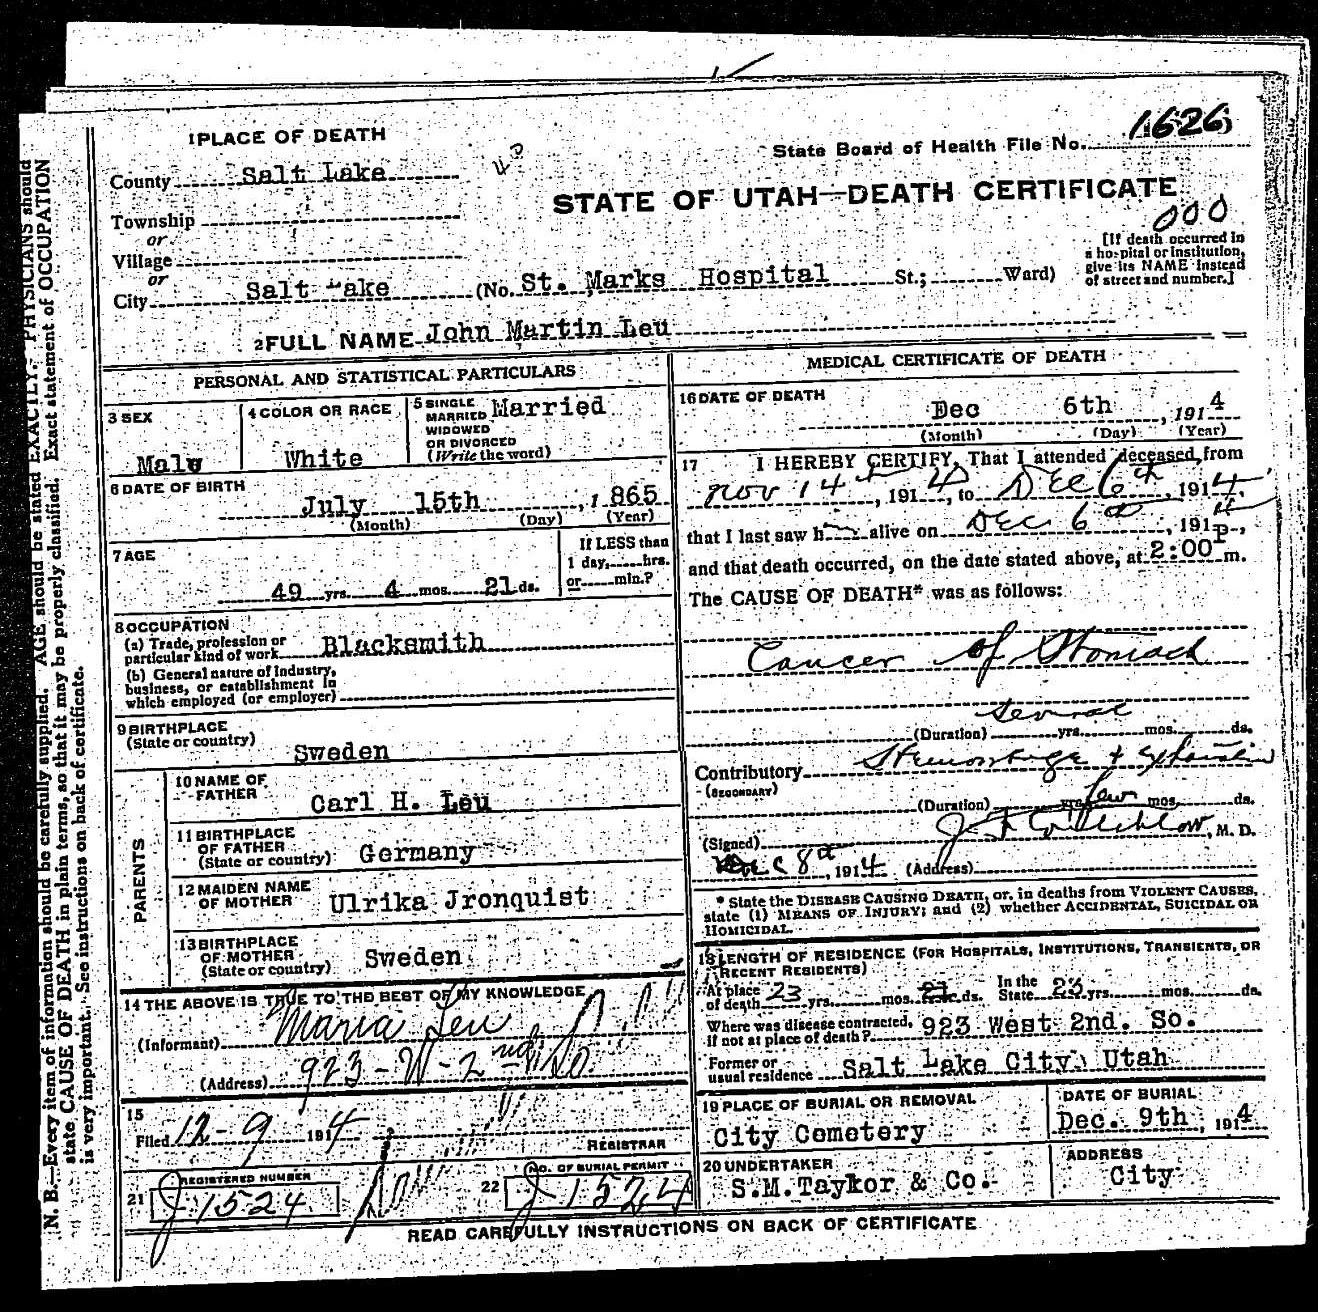 1626
State Board of Health File No.
STATE OF UTAH—DEATH CERTIFICATE
000
[If death occurred in
a hospital or institution,
give its NAME instead
of street and number.]
1 PLACE OF DEATH
County Salt Lake
Township
or
Village
or
City Salt Lake (No. St. Marks Hospital St.; Ward)
2 FULL NAME John Martin Leu
PERSONAL AND STATISTICAL PARTICULARS
3 SEX
Male
4 COLOR OR RACE
White
5 SINGLE
MARRIED
WIDOWED
OR DIVORCED
(Write the word)
Married
6 DATE OF BIRTH
July 15th, 1865
(Month) (Day) (Year)
7 AGE
49 yrs. 4 mos. 21 ds.
If LESS than
1 day, hrs.
or min.?
8 OCCUPATION
(a) Trade, profession or
particular kind of work Blacksmith
(b) General nature of industry,
business, or establishment in
which employed (or employer)
9 BIRTHPLACE
(State or country)
Sweden
PARENTS
10 NAME OF
FATHER
Carl H. Leu
11 BIRTHPLACE
OF FATHER
(State or country) Germany
12 MAIDEN NAME
OF MOTHER Ulrika Jronquist
13 BIRTHPLACE
OF MOTHER
(State or country) Sweden
14 THE ABOVE IS TRUE TO THE BEST OF MY KNOWLEDGE
(Informant) Maria Leu
(Address) 923-W-2nd So.
15
Filed 12-9 1914
REGISTRAR
21 REGISTERED NUMBER
J 1524
22 NO. OF BURIAL PERMIT
J 1524
MEDICAL CERTIFICATE OF DEATH
16 DATE OF DEATH
Dec 6th, 1914
(Month) (Day) (Year)
17 I HEREBY CERTIFY, That I attended deceased from
Nov 14th, 1914, to Dec 6th, 1914,
that I last saw h alive on Dec 6th, 1914,
and that death occurred, on the date stated above, at 2:00 P m.
The CAUSE OF DEATH* was as follows:
Cancer of Stomach
several
(Duration) yrs. mos. ds.
Contributory Hemorrhage & Exhaustion
(SECONDARY)
few
(Duration) yrs. mos. ds.
(Signed) M. D.
Dec 8th, 1914 (Address)
* State the DISEASE CAUSING DEATH, or, in deaths from VIOLENT CAUSES,
state (1) MEANS OF INJURY; and (2) whether ACCIDENTAL, SUICIDAL OR
HOMICIDAL.
18 LENGTH OF RESIDENCE (FOR HOSPITALS, INSTITUTIONS, TRANSIENTS, OR
RECENT RESIDENTS)
At place
of death 23 yrs. mos. 21 ds. In the
State 23 yrs. mos. ds.
Where was disease contracted,
if not at place of death? 923 West 2nd. So.
Former or
usual residence Salt Lake City, Utah
19 PLACE OF BURIAL OR REMOVAL
City Cemetery
DATE OF BURIAL
Dec. 9th, 1914
20 UNDERTAKER
S.M.Taykor & Co.
ADDRESS
City
READ CAREFULLY INSTRUCTIONS ON BACK OF CERTIFICATE
N. B.—Every item of information should be carefully supplied. AGE should be stated EXACTLY. PHYSICIANS should
state CAUSE OF DEATH in plain terms, so that it may be properly classified. Exact statement of OCCUPATION
is very important. See instructions on back of certificate.